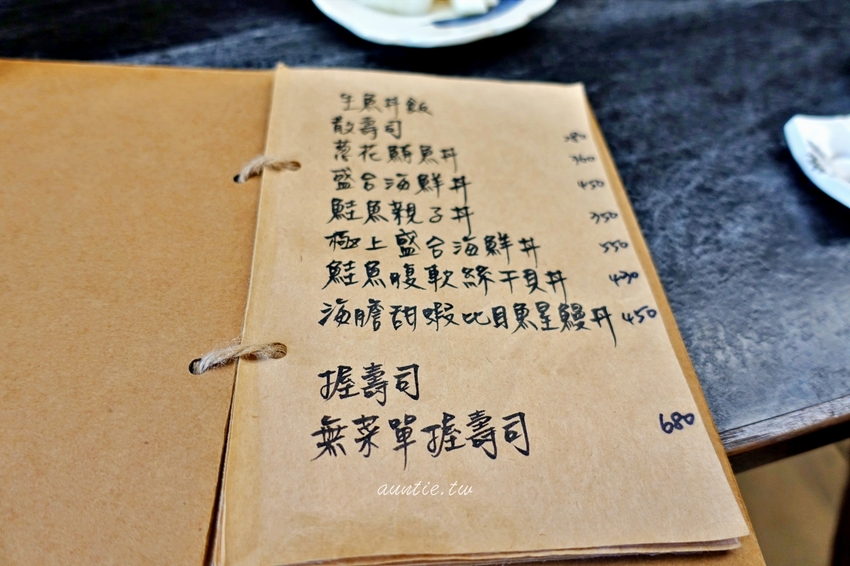 生魚丼飯
散壽司 280
蔥花鮪魚丼 360
盛合海鮮丼 450
鮭魚親子丼 350
極上盛合海鮮丼 550
鮭魚腹軟絲干貝丼 430
海膽甜蝦比目魚星鰻丼 450
握壽司
無菜單握壽司 680
auntie.tw